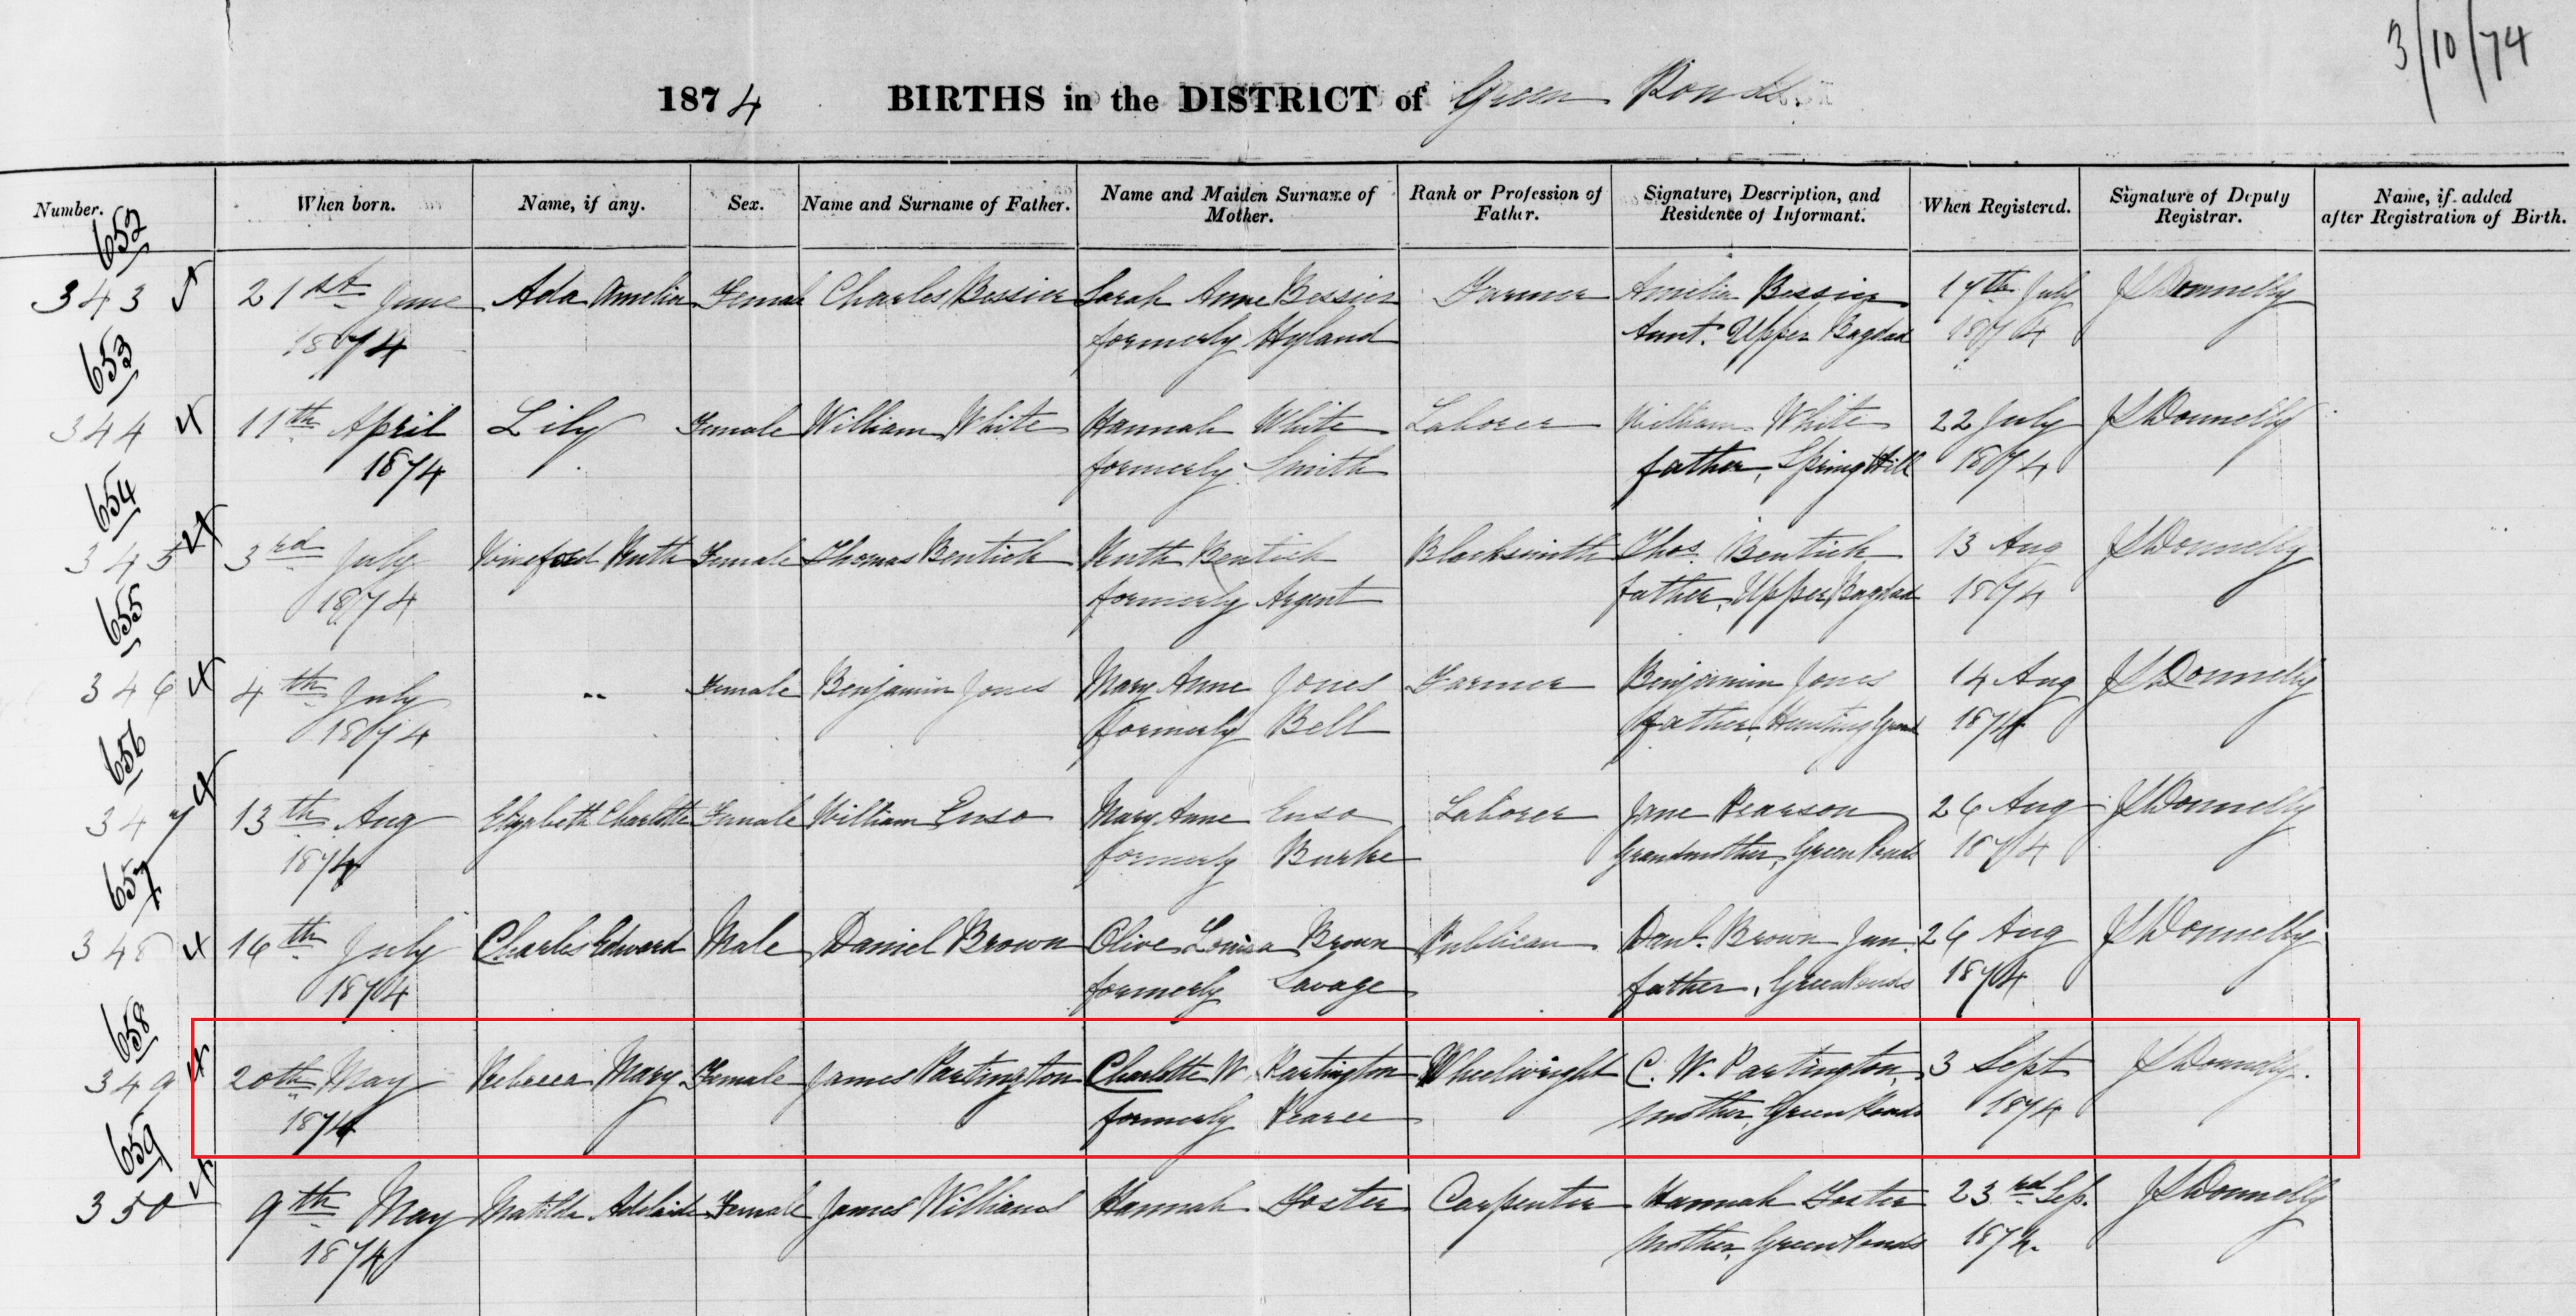 3/10/74
1874 BIRTHS in the DISTRICT of Green Ponds
Number. When born. Name, if any. Sex. Name and Surname of Father. Name and Maiden Surname of Mother. Rank or Profession of Father. Signature, Description, and Residence of Informant. When Registered. Signature of Deputy Registrar. Name, if added after Registration of Birth.
652
343 21st June Ada Amelia Female Charles Bessier Sarah Anne Bessier Farmer Amelia Bessier 17th July JS Donnelly
1874 formerly Hyland Aunt. Upper Bagdad 1874
653
344 11th April Lily Female William White Hannah White Laborer William White 22 July JS Donnelly
1874 formerly Smith father, Spring Hill 1874
654
345 3rd July Ruth Female Thomas Bentick Ruth Bentick Blacksmith Thos. Bentick 13 Aug JS Donnelly
1874 formerly Argent father, Upper Bagdad 1874
655
346 4th July " Female Benjamin Jones Mary Anne Jones Farmer Benjamin Jones 14 Aug JS Donnelly
1874 formerly Bell father, Hunting Ground 1874
656
347 13th Aug Elizabeth Charlotte Female William Enso Mary Anne Enso Laborer Jane Pearson 26 Aug JS Donnelly
1874 formerly Burke Grandmother, Green Ponds 1874
657
348 16th July Charles Edward Male Daniel Brown Olive Louisa Brown Publican Danl. Brown Jun. 26 Aug JS Donnelly
1874 formerly Savage father, Green Ponds 1874
658
349 20th May Rebecca Mary Female James Partington Charlotte W. Partington Wheelwright C. W. Partington, 3 Sept JS Donnelly.
1874 formerly Pearce mother, Green Ponds 1874
659
350 9th May Matilda Adelaide Female James Williams Hannah Foster Carpenter Hannah Foster 23rd Sep. JS Donnelly
1874 Mother, Green Ponds 1874.